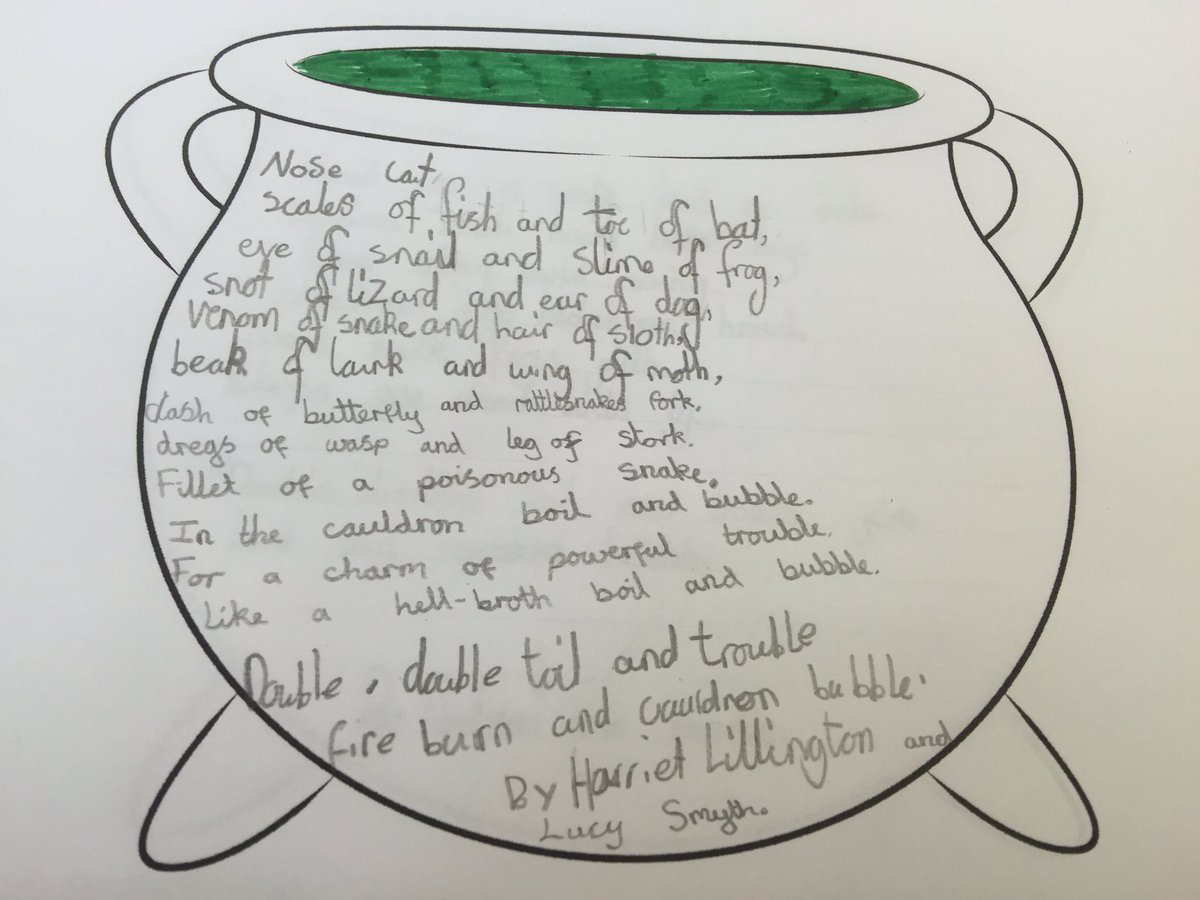 Nose cat,
scales of fish and toe of bat,
eye of snail and slime of frog,
snot of lizard and ear of dog,
venom of snake and hair of sloth,
beak of lark and wing of moth,
dash of butterfly and rattlesnakes fork.
dregs of wasp and leg of stork.
Fillet of a poisonous snake.
In the cauldron boil and bubble.
For a charm of powerful trouble.
Like a hell-broth boil and bubble.
Double, double toil and trouble
fire burn and cauldron bubble.
By Harriet Lillington and
Lucy Smyth.